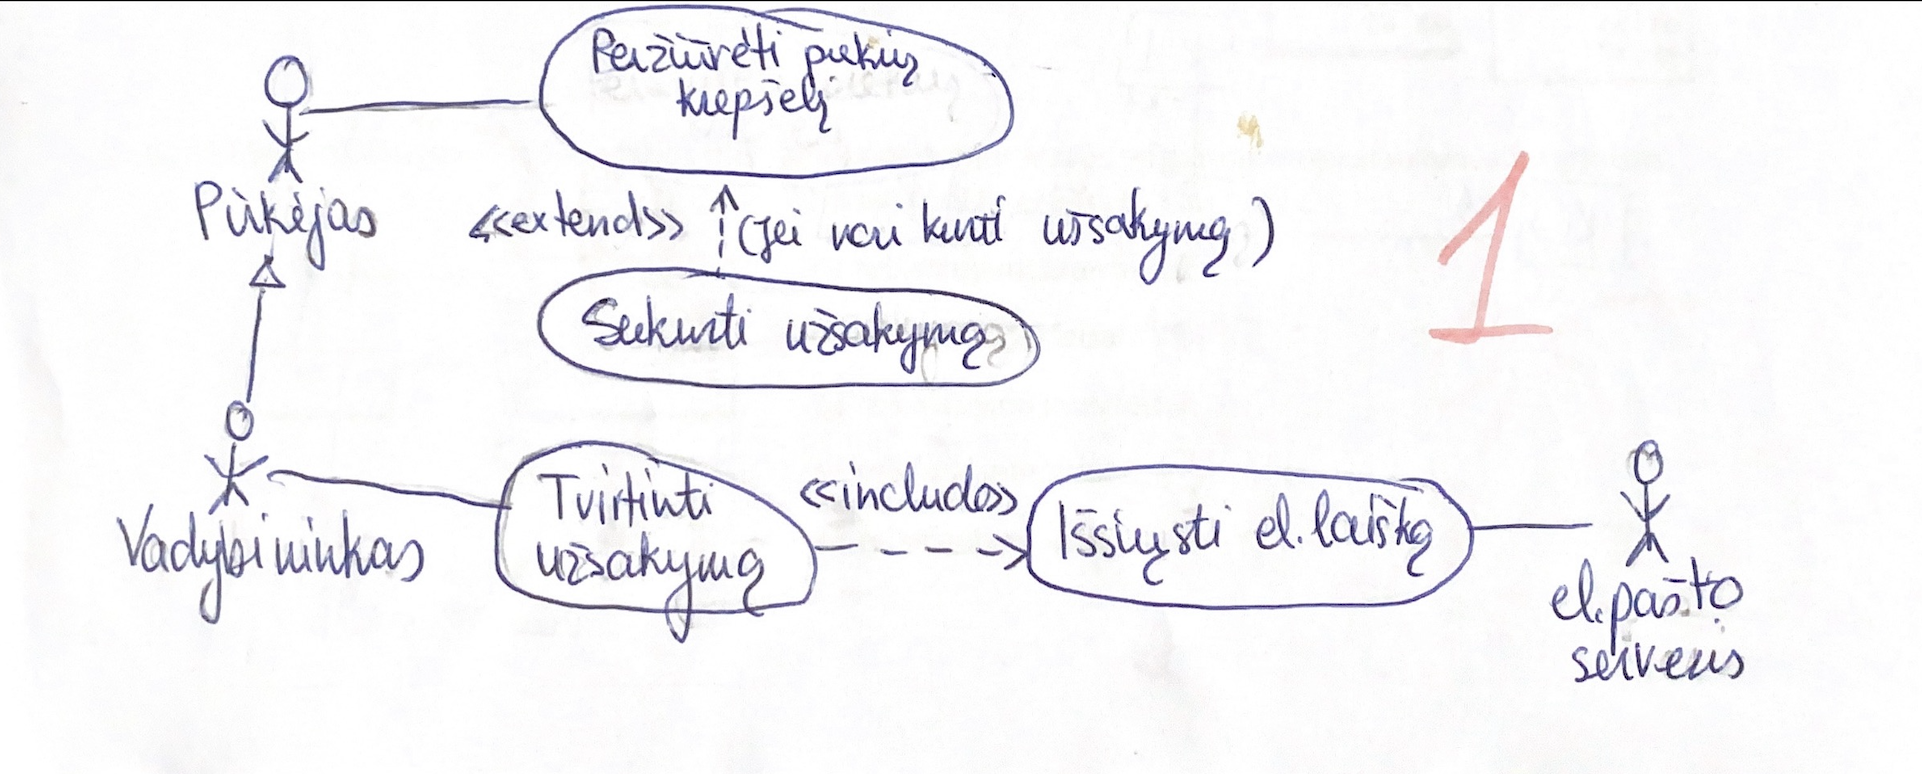 Peržiūrėti prekių
krepšelį
Pirkėjas
<<extend>>
(jei nori kurti užsakymą)
Sukurti užsakymą
1
Vadybininkas
Tvirtinti
užsakymą
<<include>>
Išsiųsti el. laišką
el. pašto
serveris